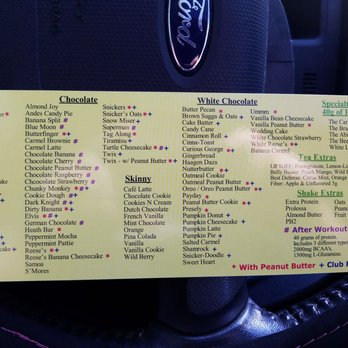 Ford
Chocolate
Almond Joy
Andes Candy Pie
Banana Split #
Blue Moon #
Butterfinger *+
Carmel Brownie
Carmel Latte
Chocolate Banana #
Chocolate Cherry #
Chocolate Peanut Butter #
Chocolate Raspberry #
Chocolate Strawberry #
Chunky Monkey *+
Cookie Dough #+
Dark Knight #+
Dirty Banana *+
Elvis *+
German Chocolate #
Heath Bar *
Peppermint Mocha
Peppermint Pattie
Reese's *+
Reese's Banana Cheesecake *
Samoa
S'Mores
Snickers *+
Snicker's Oats *+
Snow Miser +
Superman #
Tag Along *
Tiramisu +
Turtle Cheesecake *+
Twix +
Twix - w/ Peanut Butter *+
Skinny
Café Latte
Chocolate Cookie
Cookies N Cream
Dutch Chocolate
French Vanilla
Mint Chocolate
Orange
Pina Colada
Vanilla
Vanilla Cookie
Wild Berry
White Chocolate
Butter Pecan *
Brown Sugga & Oats +
Cake Batter +
Candy Cane
Cinnamon Roll +
Cinna-Toast
Curious George *+
Gingerbread
Haagen Dazs
Nutterbutter *+
Oatmeal Cookie
Oatmeal Peanut Butter *+
Oreo / Oreo Peanut Butter *+
Payday *
Peanut Butter Cookie *+
Presely *+
Pumpkin Donut +
Pumpkin Cheesecake +
Pumpkin Latte
Pumpkin Pie +
Salted Carmel
Shamrock +
Snicker-Doodle +
Sweet Heart
Umman *
Vanilla Bean Cheesecake
Vanilla Peanut Butter *
Wedding Cake
White Chocolate Strawberry
White Reese's *+
Banana Carmel
Tea Extras
Fiber, Apple & Unflavored
Shake Extras
Extra Protein
Oats
Prolessa
Peanut
Almond Butter
Fruit
PB2
# After Workout
40 grams of protein
Includes 3 different types
2000mg BCAA's,
1500mg L-Glutamine.
* With Peanut Butter + Club